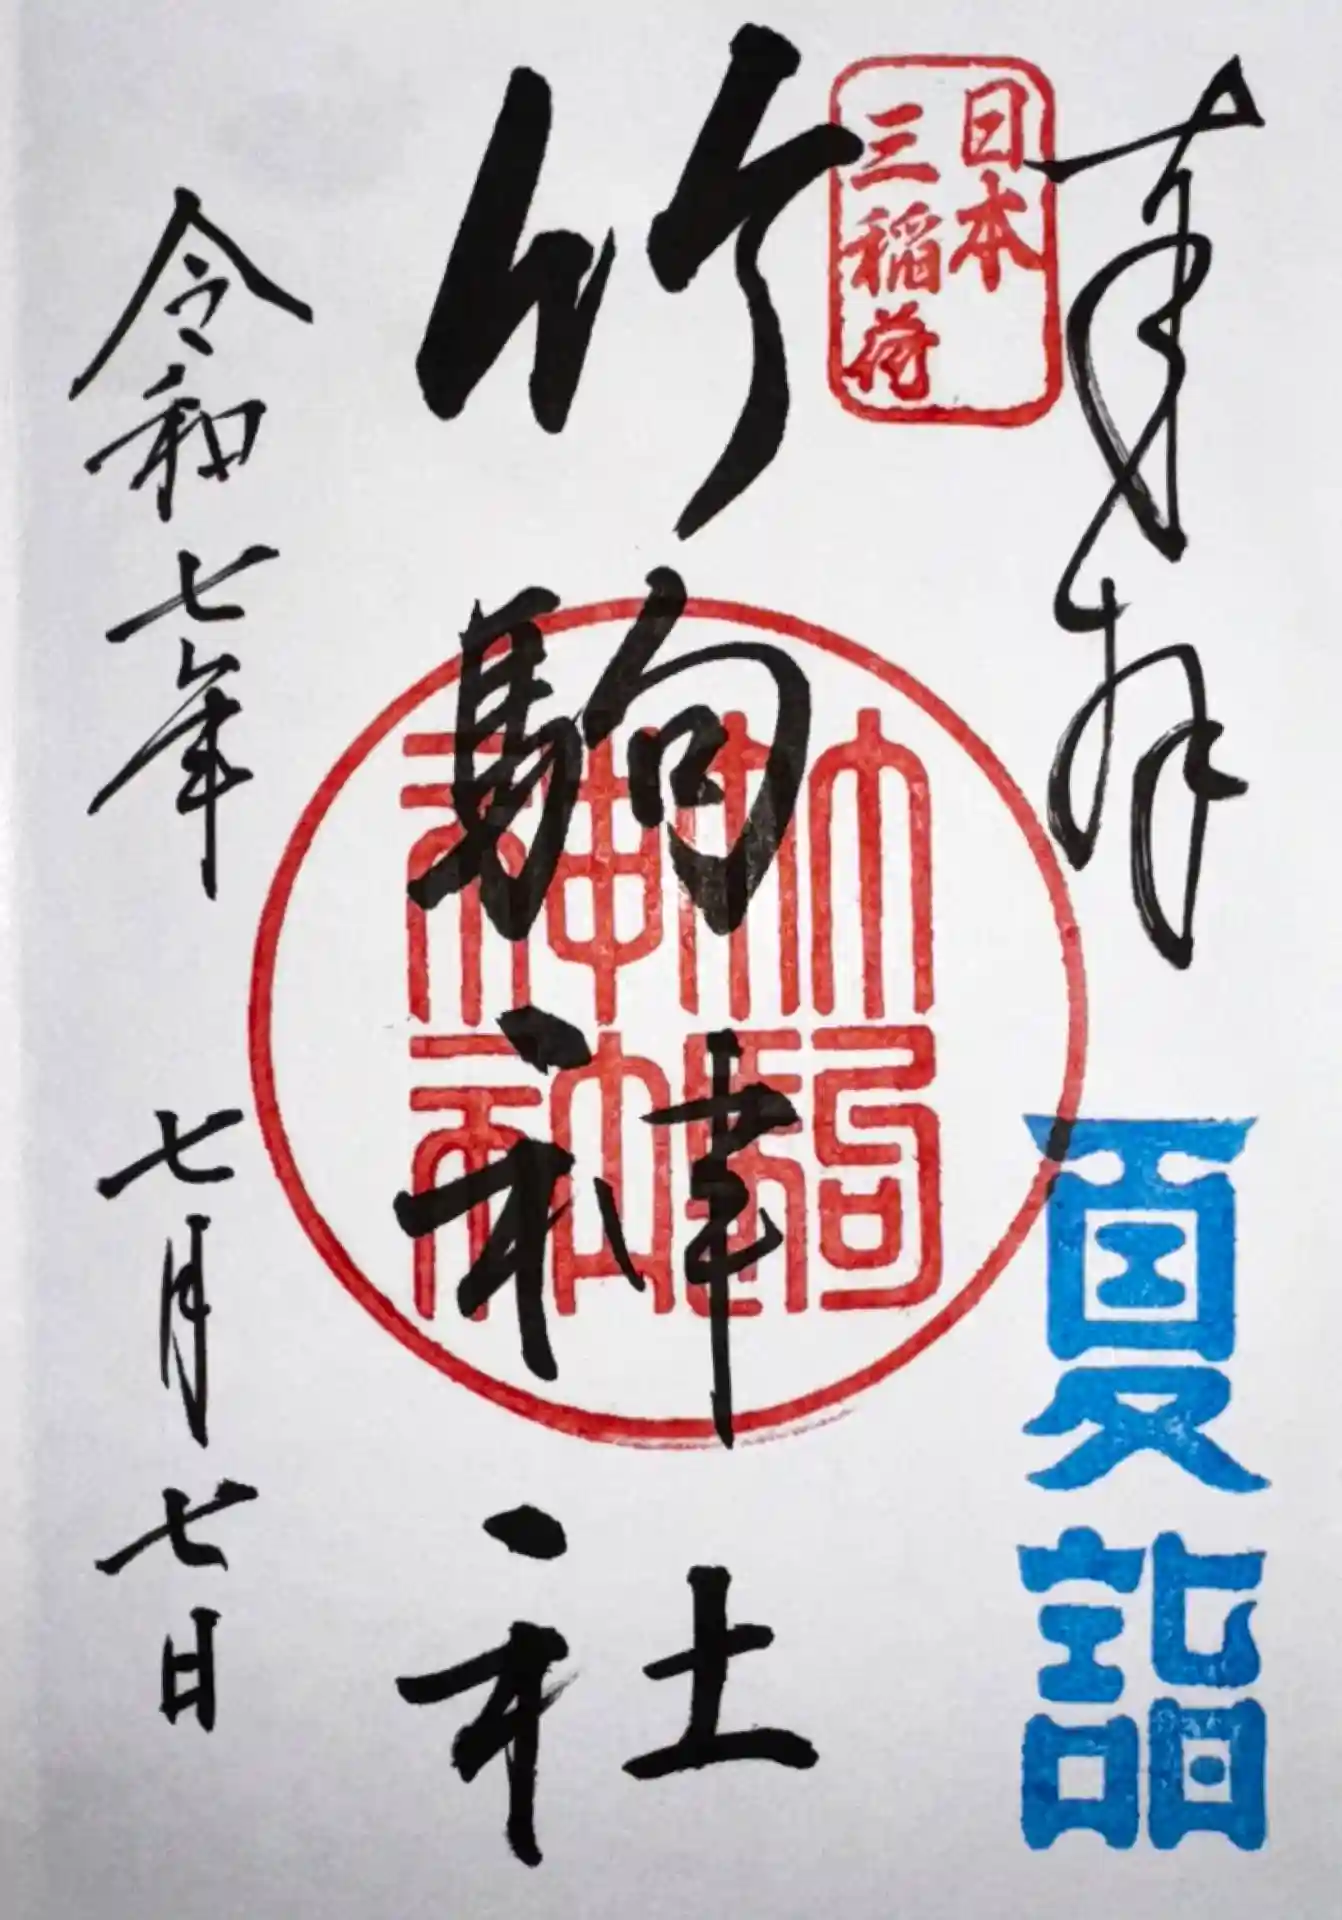 奉拝
夏詣
日本
三稲荷
竹駒神社
竹駒
神社
令和七年 七月七日